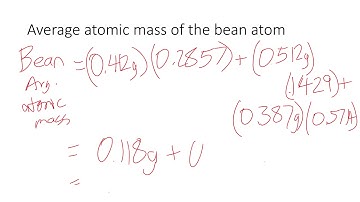 Average atomic mass of the bean atom
Bean = (0.412g)(0.2857) + (0.512g)
Avg. (.1429) +
atomic (0.387g)(0.571
mass
= 0.118g + 0
=